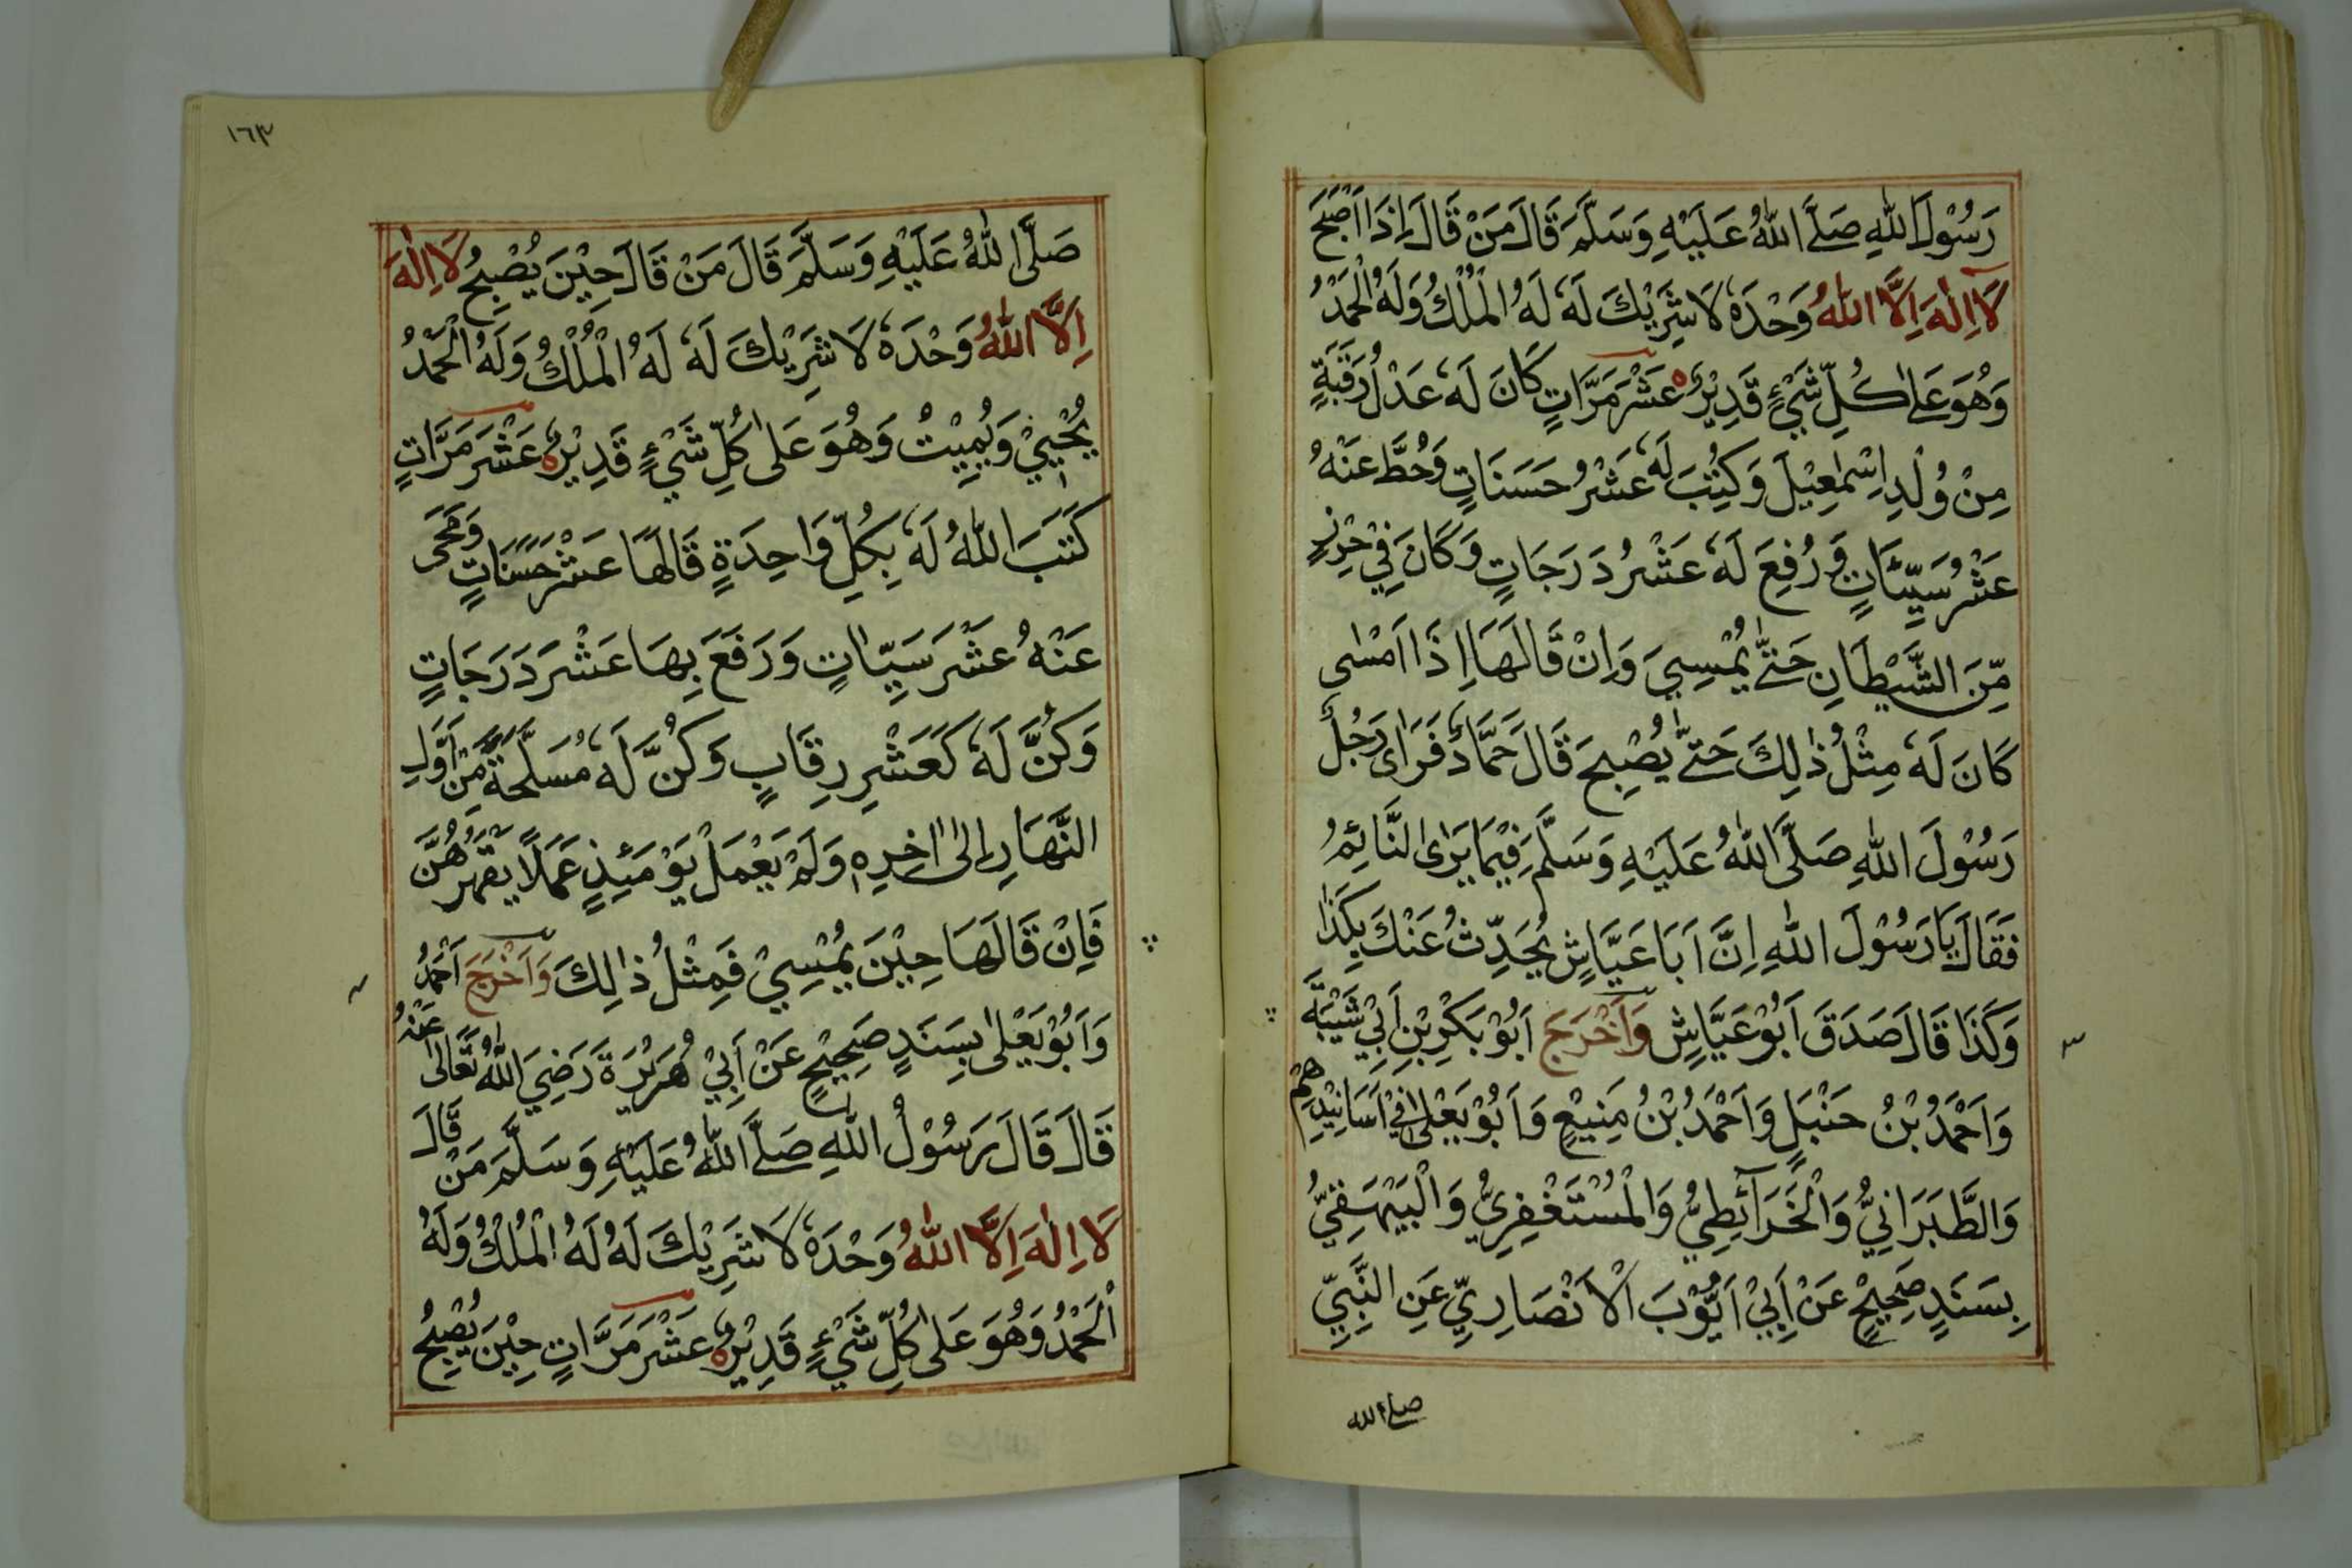 رَسُوْلَ اللّٰهِ صَلَّے اللّٰهُ عَلَيْهِ وَسَلَّمَ قَالَ مَنْ قَالَ اِذَا اَصْبَحَ
لَا اِلٰهَ اِلَّا اللّٰهُ وَحْدَهٗ لَا شَرِيْكَ لَهٗ لَهُ الْمُلْكُ وَلَهُ الْحَمْدُ
وَهُوَ عَلٰے كُلِّ شَيْءٍ قَدِيْرٌ عَشْرَ مَرَّاتٍ كَانَ لَهٗ عَدْلُ رَقَبَةٍ
مِنْ وُلْدِ اِسْمٰعِيْلَ وَكُتِبَ لَهٗ عَشْرُ حَسَنَاتٍ وَحُطَّ عَنْهُ
عَشْرُ سَيِّئَاتٍ وَرُفِعَ لَهٗ عَشْرُ دَرَجَاتٍ وَكَانَ فِيْ حِرْزٍ
مِّنَ الشَّيْطَانِ حَتّٰے يُمْسِيَ وَاِنْ قَالَهَا اِذَا اَمْسٰى
كَانَ لَهٗ مِثْلُ ذٰلِكَ حَتّٰے يُصْبِحَ قَالَ حَمَّادٌ فَرَاٰى رَجُلٌ
رَسُوْلَ اللّٰهِ صَلَّى اللّٰهُ عَلَيْهِ وَسَلَّمَ فِيْمَا يَرَى النَّائِمُ
فَقَالَ يَا رَسُوْلَ اللّٰهِ اِنَّ اَبَا عَيَّاشٍ يُحَدِّثُ عَنْكَ بِكَذَا
وَكَذَا قَالَ صَدَقَ اَبُوْ عَيَّاشٍ وَاَخْرَجَ اَبُوْ بَكْرِ بْنِ اَبِيْ شَيْبَةَ
وَاَحْمَدُ بْنُ حَنْبَلٍ وَاَحْمَدُ بْنُ مَنِيْعٍ وَاَبُوْ يَعْلٰى فِيْ اَسَانِيْدِهِمْ
وَالطَّبَرَانِيُّ وَالْخَرَآئِطِيُّ وَالْمُسْتَغْفِرِيُّ وَالْبَيْهَقِيُّ
بِسَنَدٍ صَحِيْحٍ عَنْ اَبِيْ اَيُّوْبَ الْاَنْصَارِيِّ عَنِ النَّبِيِّ
صلے الله
١٦٣
صَلَّى اللّٰهُ عَلَيْهِ وَسَلَّمَ قَالَ مَنْ قَالَ حِيْنَ يُصْبِحُ لَا اِلٰهَ
اِلَّا اللّٰهُ وَحْدَهٗ لَا شَرِيْكَ لَهٗ لَهُ الْمُلْكُ وَلَهُ الْحَمْدُ
يُحْيِيْ وَيُمِيْتُ وَهُوَ عَلٰى كُلِّ شَيْءٍ قَدِيْرٌ عَشْرَ مَرَّاتٍ
كَتَبَ اللّٰهُ لَهٗ بِكُلِّ وَاحِدَةٍ قَالَهَا عَشْرَ حَسَنَاتٍ وَمَحٰى
عَنْهُ عَشْرَ سَيِّاٰتٍ وَرَفَعَ بِهَا عَشْرَ دَرَجَاتٍ
وَكُنَّ لَهٗ كَعَشْرِ رِقَابٍ وَكُنَّ لَهٗ مُسَلَّحَةً مِّنْ اَوَّلِ
النَّهَارِ اِلٰى اٰخِرِهٖ وَلَمْ يَعْمَلْ يَوْمَئِذٍ عَمَلًا يَقْهَرُهُنَّ
فَاِنْ قَالَهَا حِيْنَ يُمْسِيْ فَمِثْلُ ذٰلِكَ وَاَخْرَجَ اَحْمَدُ
وَاَبُوْ يَعْلٰى بِسَنَدٍ صَحِيْحٍ عَنْ اَبِيْ هُرَيْرَةَ رَضِيَ اللّٰهُ تَعَالٰى عَنْهُ
قَالَ قَالَ رَسُوْلُ اللّٰهِ صَلَّے اللّٰهُ عَلَيْهِ وَسَلَّمَ مَنْ قَالَ
لَا اِلٰهَ اِلَّا اللّٰهُ وَحْدَهٗ لَا شَرِيْكَ لَهُ لَهُ الْمُلْكُ وَلَهُ
الْحَمْدُ وَهُوَ عَلٰى كُلِّ شَيْءٍ قَدِيْرٌ عَشْرَ مَرَّاتٍ حِيْنَ يُصْبِحُ